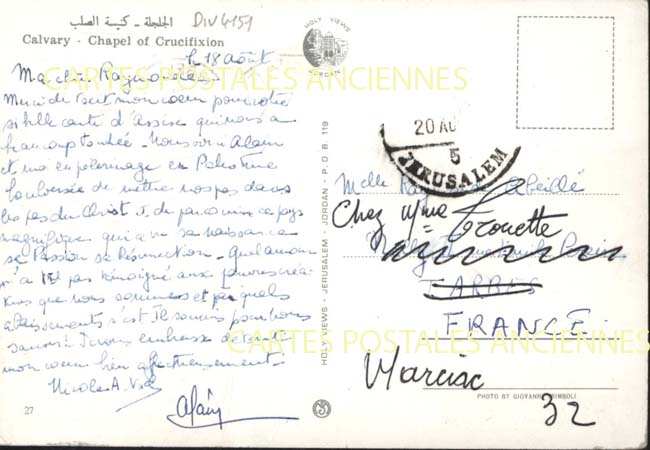 الجلجلة - كنيسة الصلب
DIV4151
Calvary - Chapel of Crucifixion
HOLY VIEWS
JORDAN
le 18 août
Ma chère Raymonde
CARTES POSTALES ANCIENNES
Merci de tout mon coeur pour votre
si belle carte d'Assise qui nous a
beaucoup touchée - Nous voici Alain
et moi en pélerinage en Palestine
bouleversée de mettre nos pas dans
les pas du Christ J. de parcourir ce pays
magnifique qui a vu sa naissance
sa Passion sa Résurrection - Quel amour
n'a t'il pas témoigné aux pauvres créa
tures que nous sommes et par quels
abaissements s'est Il soumis pour nous
sauver! Je vous embrasse de tout
mon coeur bien affectueusement
Nicole A.
Alain
27
HOLY VIEWS - JERUSALEM - JORDAN - P.O.B. 119
20 AU
5
JERUSALEM
Melle Abeillé
Chez Mme Trouette
TARBES
FRANCE
CARTES POSTALES ANCIENNES
Marciac
PHOTO BY GIOVANNI TRIMBOLI
32